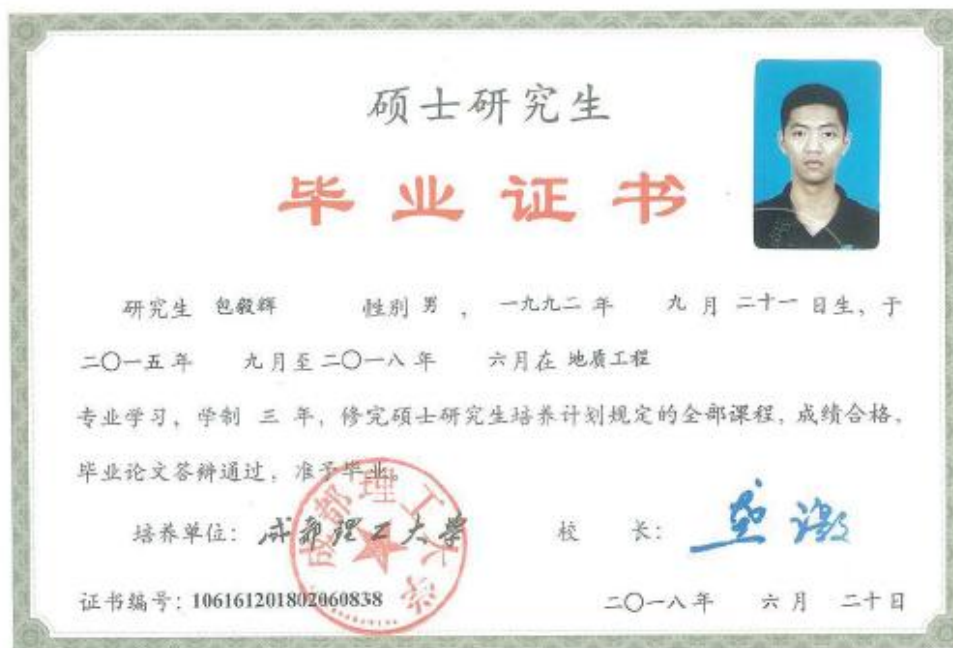 硕士研究生
毕业证书
研究生 包毅辉 性别 男 ， 一九九二 年 九 月 二十一 日生，于
二〇一五年 九月至二〇一八年 六月在 地质工程
专业学习，学制 三 年，修完硕士研究生培养计划规定的全部课程，成绩合格，
毕业论文答辩通过，准予毕业。
培养单位：成都理工大学 校 长：
成都理工大学
证书编号：106161201802060838 二〇一八年 六月 二十日